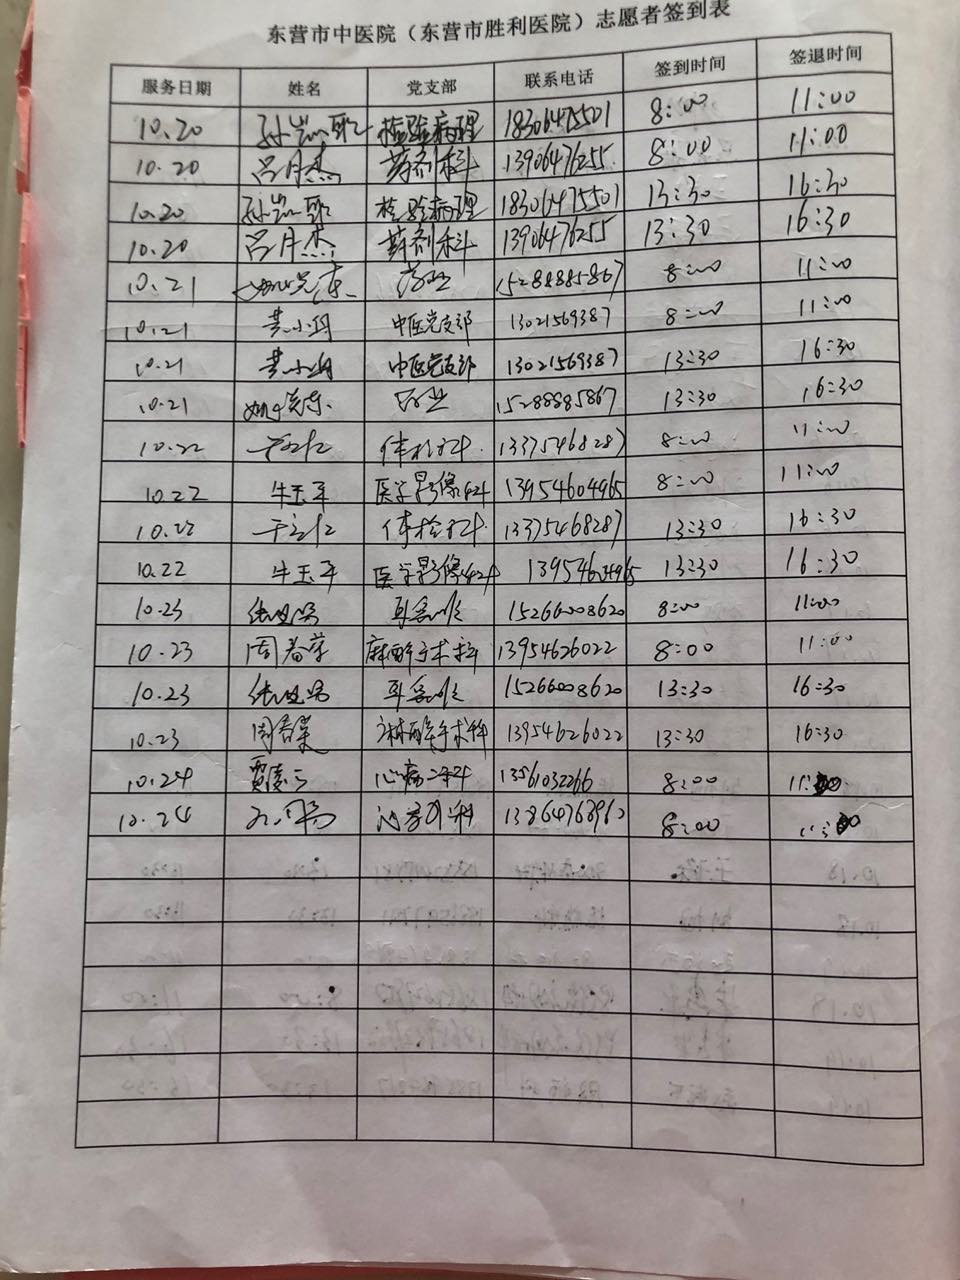 东营市中医院（东营市胜利医院）志愿者签到表
服务日期 姓名 党支部 联系电话 签到时间 签退时间
10.20 检验病理 18306475501 8:00 11:00
10.20 吕月杰 药剂科 13906476255 8:00 11:00
10.20 检验病理 18306475501 13:30 16:30
10.20 吕月杰 药剂科 13906476255 13:30 16:30
10.21 15288885867 8:00 11:00
10.21 黄小娟 中医党支部 13021569387 8:00 11:00
10.21 黄小娟 中医党支部 13021569387 13:30 16:30
10.21 15288885867 13:30 16:30
10.22 体检科 13375468287 8:00 11:00
10.22 牛玉平 医学影像 13954604965 8:00 11:00
10.22 体检科 13375468287 13:30 16:30
10.22 牛玉平 医学影像 13954604965 13:30 16:30
10.23 耳鼻喉 15266008620 8:00 11:00
10.23 周春荣 麻醉手术科 13954626022 8:00 11:00
10.23 耳鼻喉 15266008620 13:30 16:30
10.23 周春荣 麻醉手术科 13954626022 13:30 16:30
10.24 心病二科 13561032266 8:00 11:30
10.24 泌尿外科 13864768962 8:00